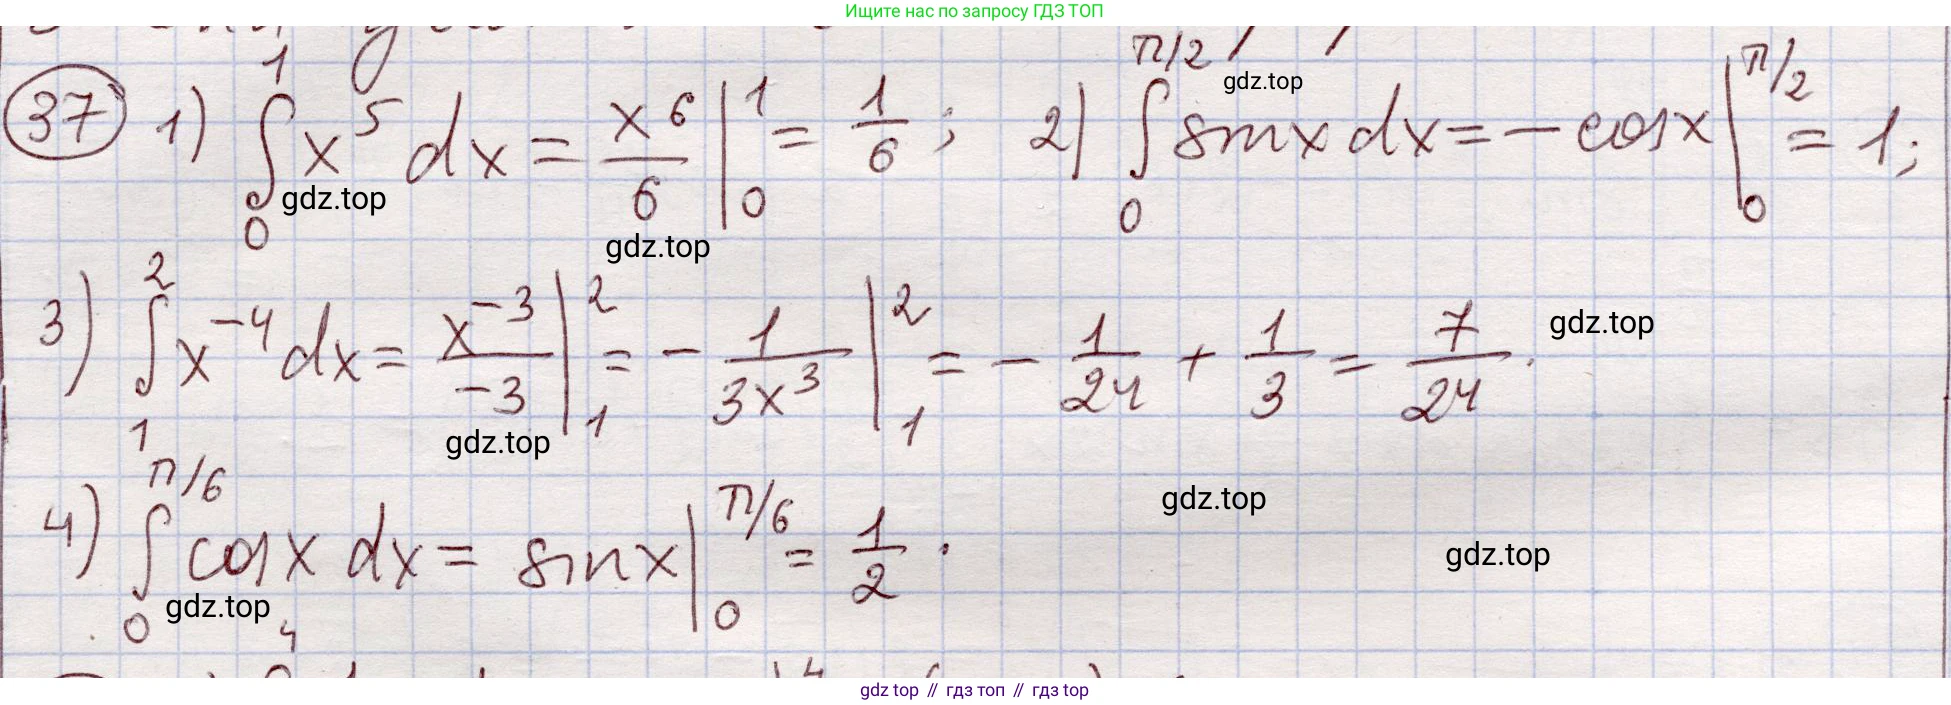 Ищите нас по запросу ГДЗ ТОП
37 1) ∫₀¹ x⁵ dx = x⁶/6 |₀¹ = 1/6; 2) ∫₀^(π/2) sin x dx = − cos x |₀^(π/2) = 1;
gdz.top
gdz.top
gdz.top
3) ∫₁² x⁻⁴ dx = x⁻³/−3 |₁² = − 1/3x³ |₁² = − 1/24 + 1/3 = 7/24.
gdz.top
gdz.top
4) ∫₀^(π/6) cos x dx = sin x |₀^(π/6) = 1/2.
gdz.top
gdz.top
gdz.top
4
gdz top // гдз топ // гдз top